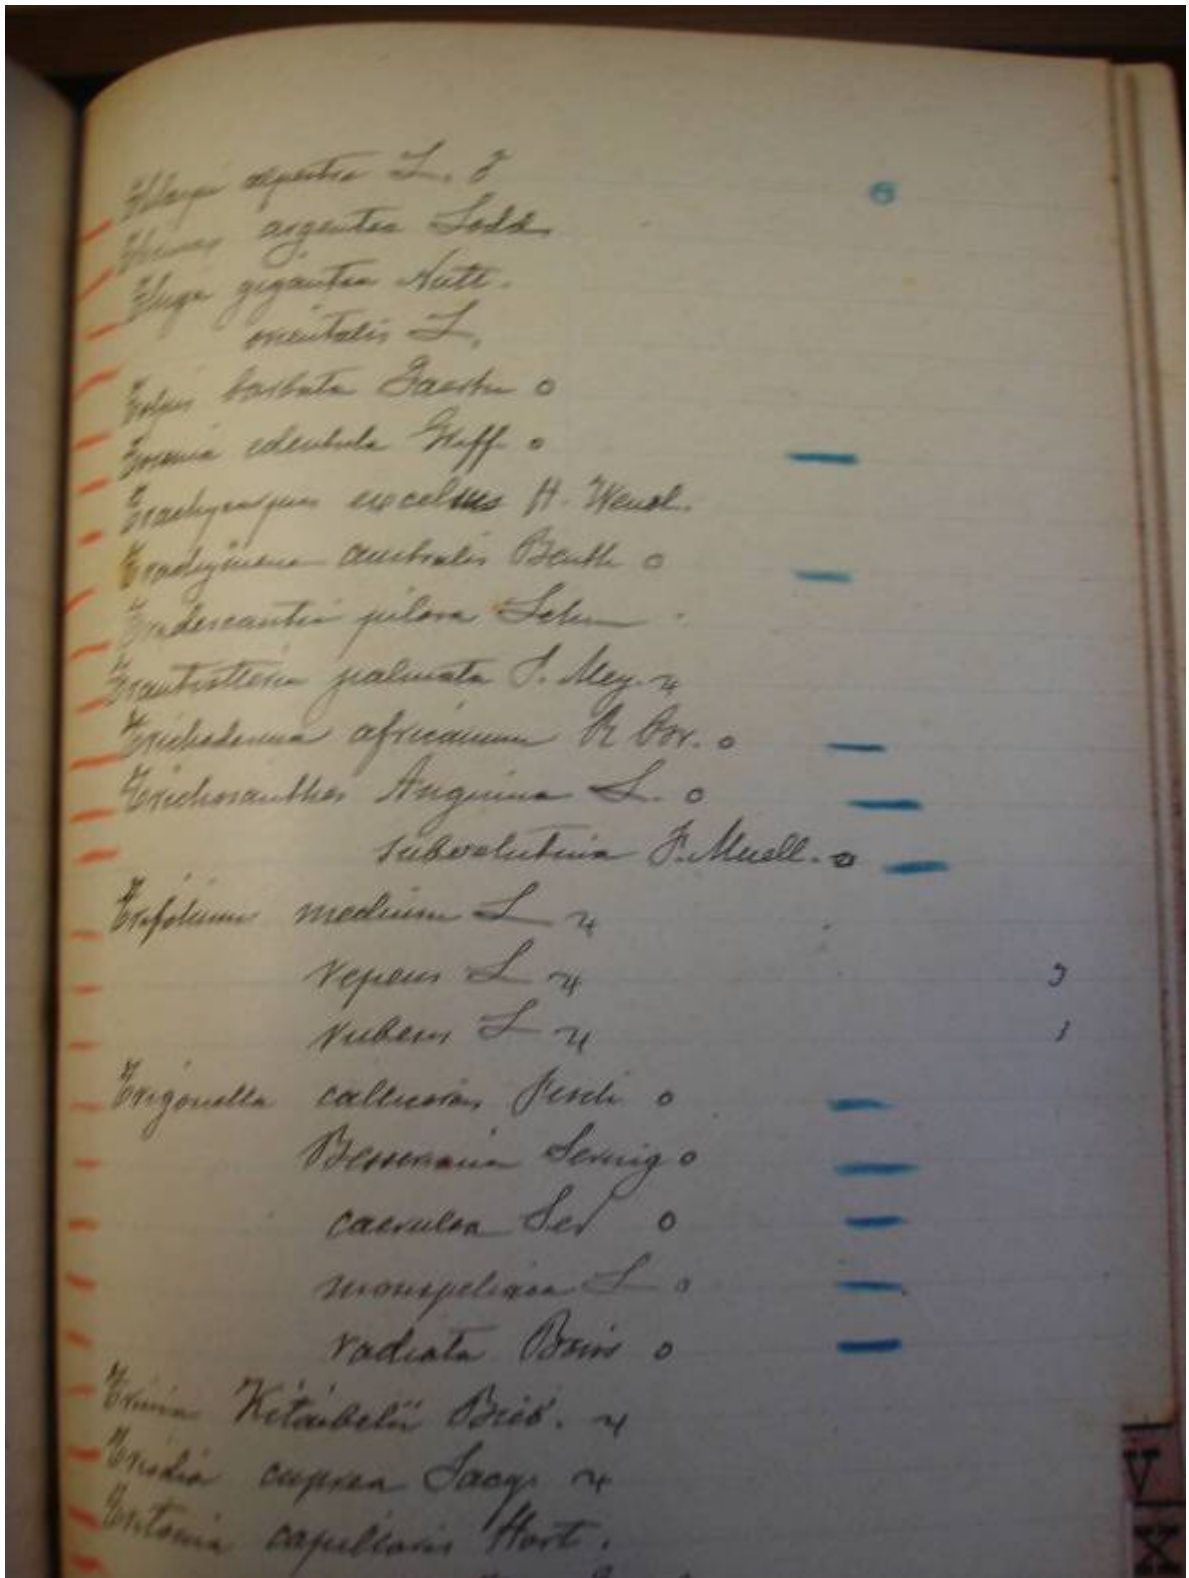 Thlaspi alpestre L. ♂
Thrinax argentea Lodd.
Thuya gigantea Nutt.
orientalis L.
Tolpis barbata Gaertn o
Torenia edentula Griff. o
Trachycarpus excelsus H. Wendl.
Trachymene australis Benth o
Tradescantia pilosa Lehm
Trautvetteria palmata F. Mey. ♃
Trichodesma africanum R Br. o
Trichosanthes Anguina L. o
subvelutina F. Muell. o
Trifolium medium L ♃
repens L ♃ 3
rubens L ♃ 1
Trigonella calliceras Fisch o
Besseriana Sering o
caerulea Ser o
monspeliaca L o
radiata Boiss o
Trinia Kitaibelii Bieb. ♃
cuprea Jacq. ♃
Tritonia capillaris Hort.
V
X